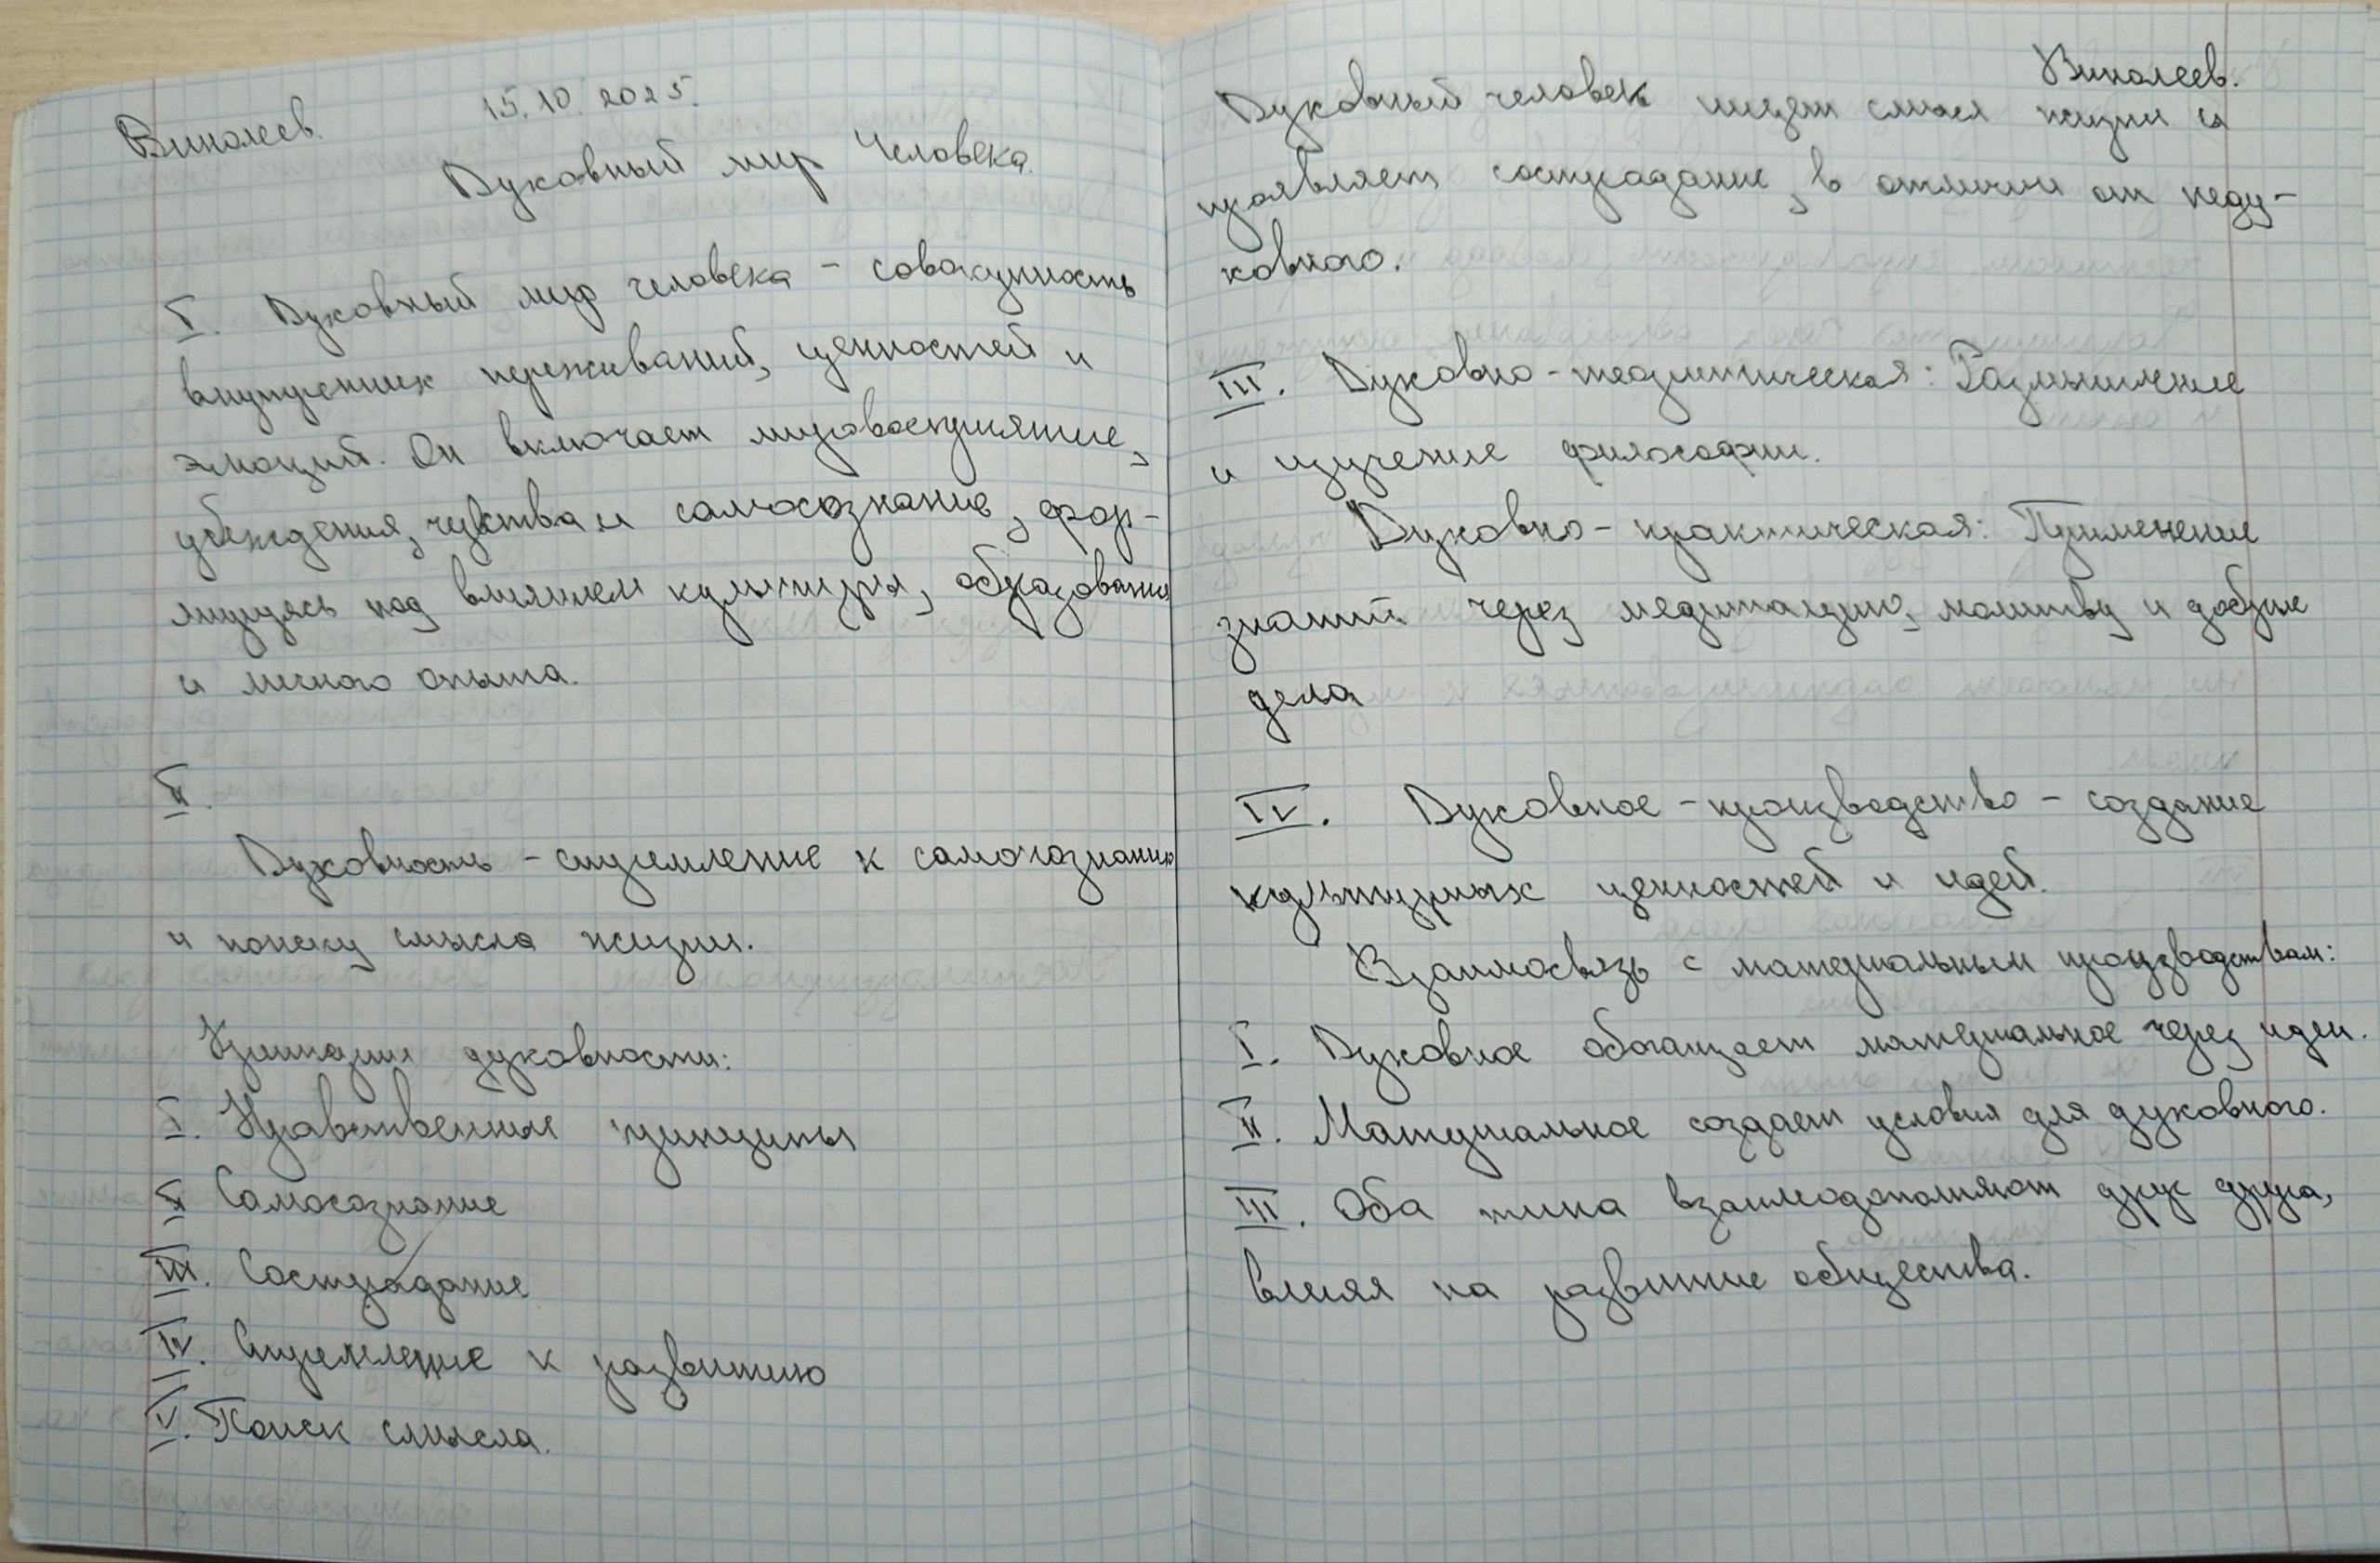 Виналеев.
15.10.2025.
Духовный мир Человека.
I. Духовный мир человека - совокупность
внутренних переживаний, ценностей и
эмоций. Он включает мировосприятие,
убеждения, чувства и самосознание, фор-
мируясь под влиянием культуры, образования
и личного опыта.
II.
Духовность - стремление к самосознанию
и поиску смысла жизни.
Критерии духовности:
I. Нравственные принципы
II Самосознание
III. Сострадание
IV. Стремление к развитию
V. Поиск смысла.
Виналеев.
Духовный человек ищет смысл жизни и
проявляет сострадание, в отличии от неду-
ховного.
III. Духовно-теоретическая: Размышление
и изучение философии.
Духовно-практическая: Применение
знаний через медитацию, молитву и добрые
дела
IV. Духовное-производство - создание
культурных ценностей и идей.
Взаимосвязь с материальным производствам:
I. Духовное обогащает материальное через идеи.
II. Материальное создает условия для духовного.
III. Оба типа взаимодополняют друг друга,
влияя на развитие общества.